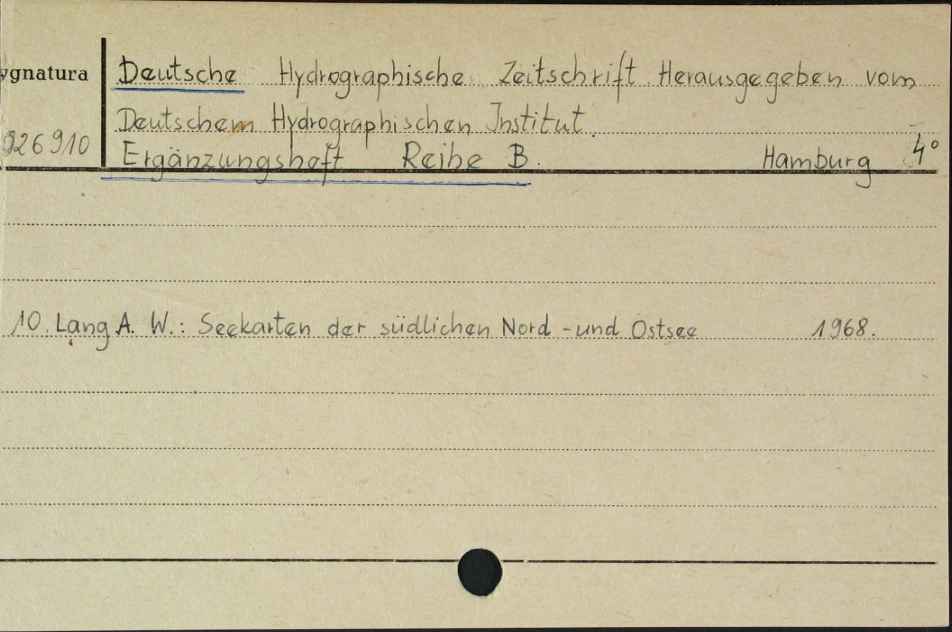 ygnatura Deutsche Hydrographische Zeitschrift Herausgegeben vom
Deutschem Hydrographischen Institut.
926910 Ergänzungsheft Reihe B. Hamburg 4°
10. Lang A. W.: Seekarten der südlichen Nord - und Ostsee 1968.